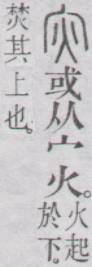 灾或从宀火。火起
於下。
焚其上也。